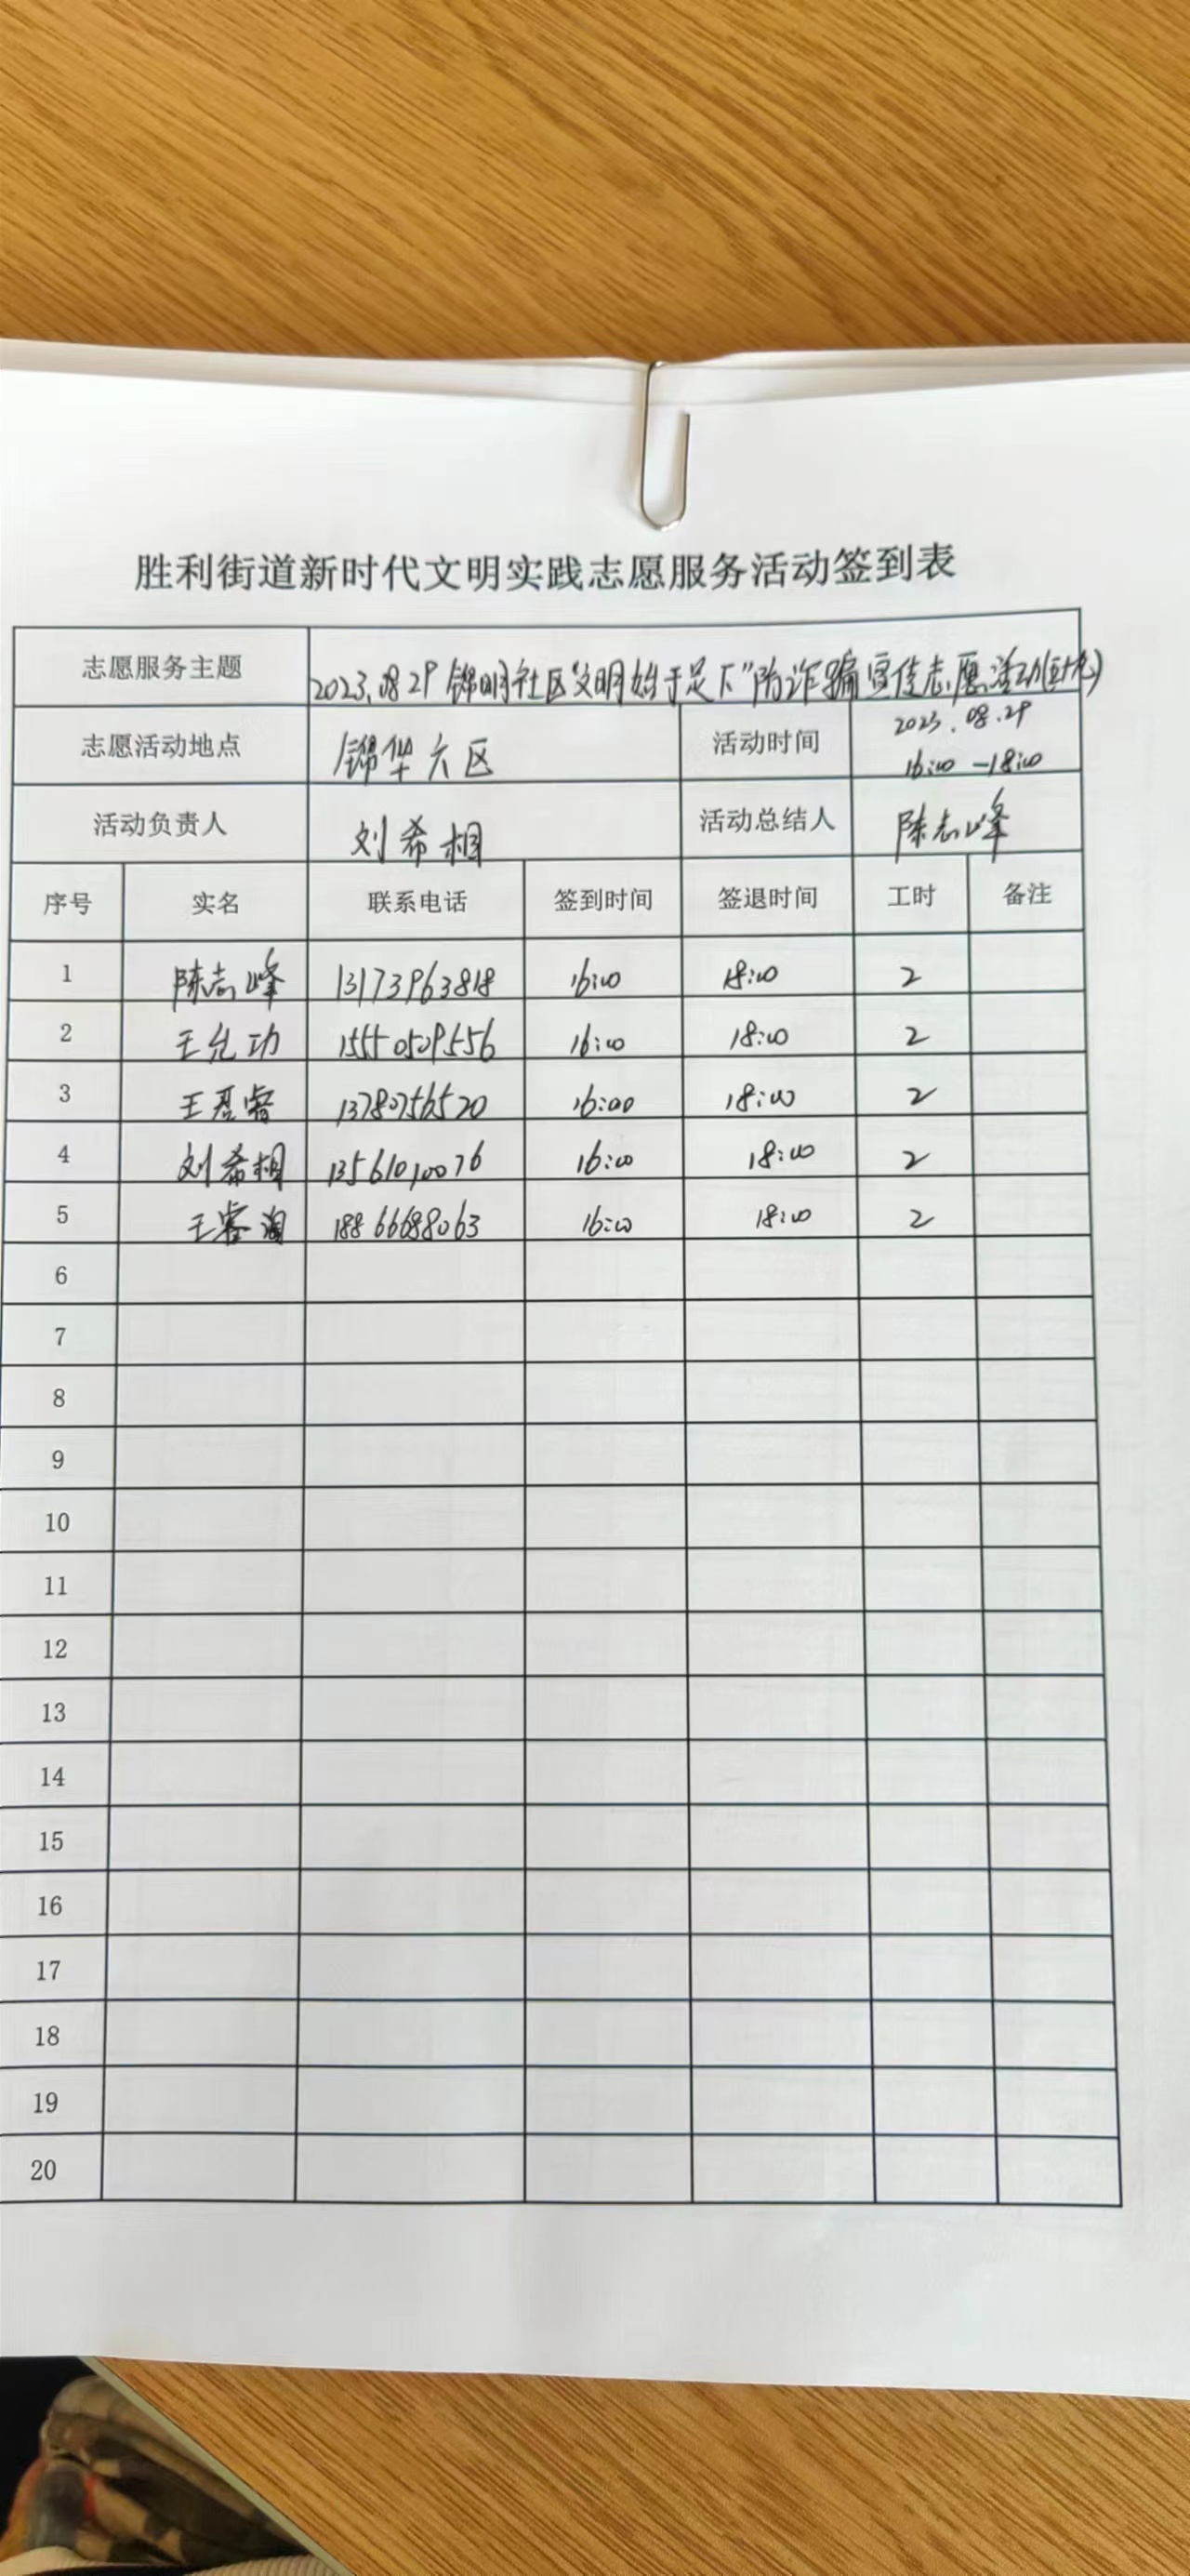 胜利街道新时代文明实践志愿服务活动签到表
志愿服务主题 2023.08.29 锦明社区"文明始于足下"防诈骗宣传志愿活动
志愿活动地点 锦华六区 活动时间 2023.08.29
16:00-18:00
活动负责人 刘希相 活动总结人 陈志峰
序号 实名 联系电话 签到时间 签退时间 工时 备注
1 陈志峰 13173963818 16:00 18:00 2
2 王允功 15550509556 16:00 18:00 2
3 王君睿 13780756520 16:00 18:00 2
4 刘希相 13561010076 16:00 18:00 2
5 王睿 18866688063 16:00 18:00 2
6
7
8
9
10
11
12
13
14
15
16
17
18
19
20